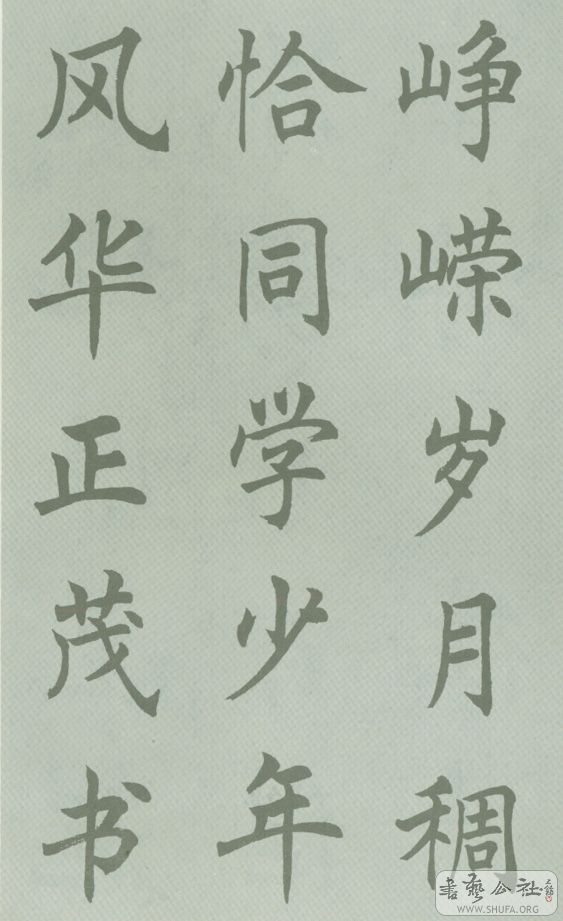 峥嵘岁月稠
恰同学少年
风华正茂书
書藝公社
WWW.SHUFA.ORG